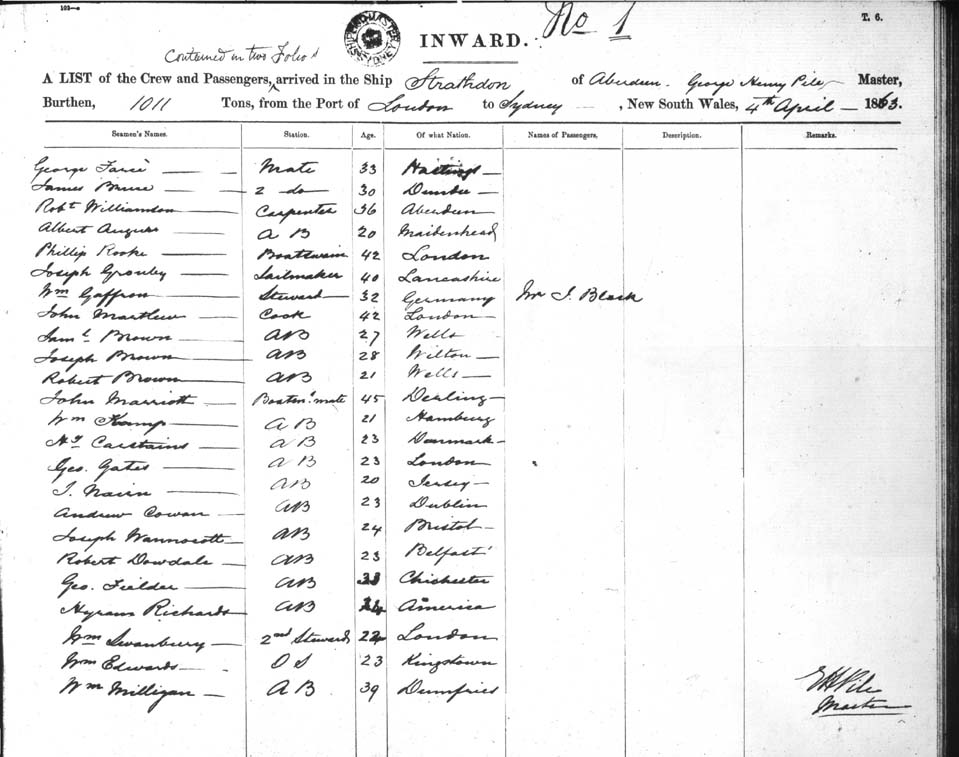 103—c
No 1
T. 6.
INWARD.
Contained in two Folios
A LIST of the Crew and Passengers, arrived in the Ship Strathdon of Aberdeen George Henry Pile Master,
Burthen, 1011 Tons, from the Port of London to Sydney, New South Wales, 4th April 1863.
Seamen's Names. Station. Age. Of what Nation. Names of Passengers. Description. Remarks.
George Mate 33 Hastings
James Bruce 2 do 30 Dundee
Robt Williamson Carpenter 36 Aberdeen
Albert Angus A B 20 Maidenhead
Phillip Rooke Boatswain 42 London
Joseph Sailmaker 40 Lancashire
Wm Gaffron Steward 32 Germany Mr J. Black
John Marthew Cook 42 London
Saml Brown AB 27 Wells
Joseph Brown AB 28 Wilton
Robert Brown AB 21 Wells
John Marriott Boatsn. mate 45
Wm Kamp A B 21 Hamburg
Hy Carstains A B 23 Denmark
Geo. Gates A B 23 London
J. Nairn AB 20 Jersey
Andrew Cowan AB 23 Dublin
Joseph Wannocott AB 24 Bristol
Robert Dowdale AB 23 Belfast
Geo. Fielder AB Chichester
Hyram Richards AB America
Wm Swanbury 2nd Steward 22 London
Wm Edwards O S 23 Kingstown
Wm Milligan A B 39 Dumfries
G H Pile
Master